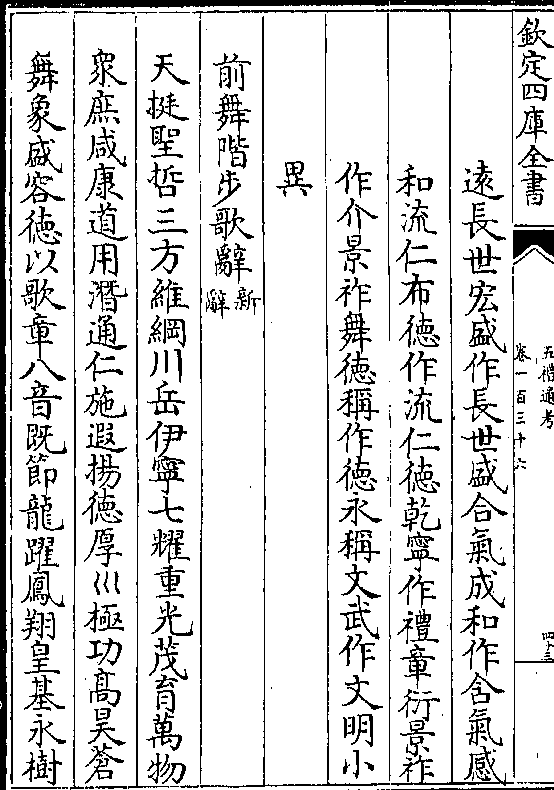 欽定四庫全書
五禮通考
卷一百三十六
四十三
遠長世宏盛作長世盛合氣成和作含氣感
和流仁布徳作流仁徳乾寧作禮章衍景祚
作介景祚舞徳稱作徳永稱文武作文明小
異
前舞階步歌辭新辭
天挺聖哲三方維綱川岳伊寧七耀重光茂育萬物
衆庶咸康道用潛通仁施遐揚徳厚巛極功髙昊蒼
舞象盛容徳以歌章八音既節龍躍鳳翔皇基永樹